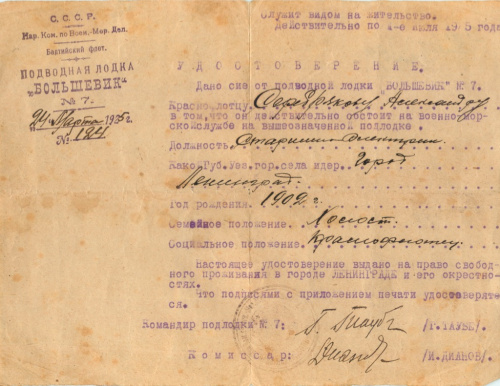 С. С. С. Р.
Нар. Ком. по Воен.-Мор. Дел.
Балтийский флот.
ПОДВОДНАЯ ЛОДКА
„БОЛЬШЕВИК"
№ 7.
24 Марта 1925 г.
№
Служит видом на жительство.
Действительно по июля 1925 года
УДОСТОВЕРЕНИЕ.
Дано сие от подводной лодки "БОЛЬШЕВИК" № 7.
Краснофлотцу
в том, что он действительно состоит на военно-мор-
ской службе на вышеозначенной подлодке.
Должность Старшина электрик
Какой Губ. Уез. гор. села и дер. Город
Ленинград
Год рождения 1902 г.
Семейное положение Холост.
Социальное положение
Настоящее удостоверение выдано на право свобод-
ного проживания в городе ЛЕНИНГРАДЕ и его окрестно-
стях.
Что подписями с приложением печати удостоверяет-
ся.
Командир подлодки № 7: Г. Таубе /Г. ТАУБЕ/
Комиссар: Дианов /И. ДИАНОВ/